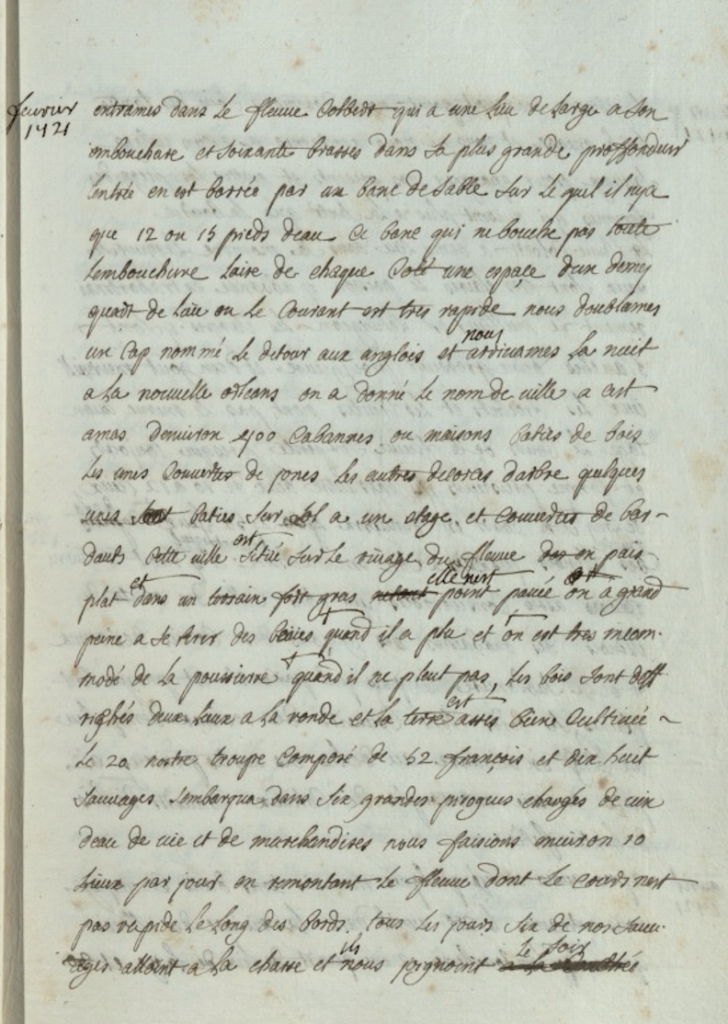 fevrier
1721
entrames dans Le fleuve Colbert qui a une Lieu de Large a Son
embouchure et Soixante brasses dans Sa plus grande proffondeur
lentrée en est barrée par un banc de Sable Sur Le quel il nya
que 12 ou 15 pieds deau Ce banc qui ne bouche pas toute
Lembouchure Laire de chaque Coté une espaçe dun demy
quart de Lieu ou Le Courant est tres rapide nous doublames
un Cap nommé Le detour aux anglois et nous arrivames La nuit
a La nouvelle orleans on a donné Le nom de ville a cest
amas Denviron 400 Cabannes ou maisons baties de bois
Les unes Couvertes de joncs Les autres decorces darbre quelques
unes baties Sur Sol a un etage et Couvertes de bar-
dauts Cette ville est Sitüé Sur Le rivage du fleuve en païs
plat et dans un terrain fort gras elle nest point pavée on a grand
peine a Se tirer des boües quand il a plu et on est tres incom-
modé de La poussierre quand il ne pleut pas, Les bois Sont deff
richés deux Lieux a La ronde et La terre est asses bien Cultivée
Le 20 nostre troupe Composé de 52 françois et dix huit
Sauvages Sembarqua dans Six grandes pirogues chargés de vin
deau de vie et de marchandises nous faisions environ 10
Lieux par jour en remontant Le fleuve dont Le Cours nest
pas rapide Le Long des bords. tous Les jours Six de nos Sauv-
ages alloint a La chasse et ils nous joignoint Le Soir